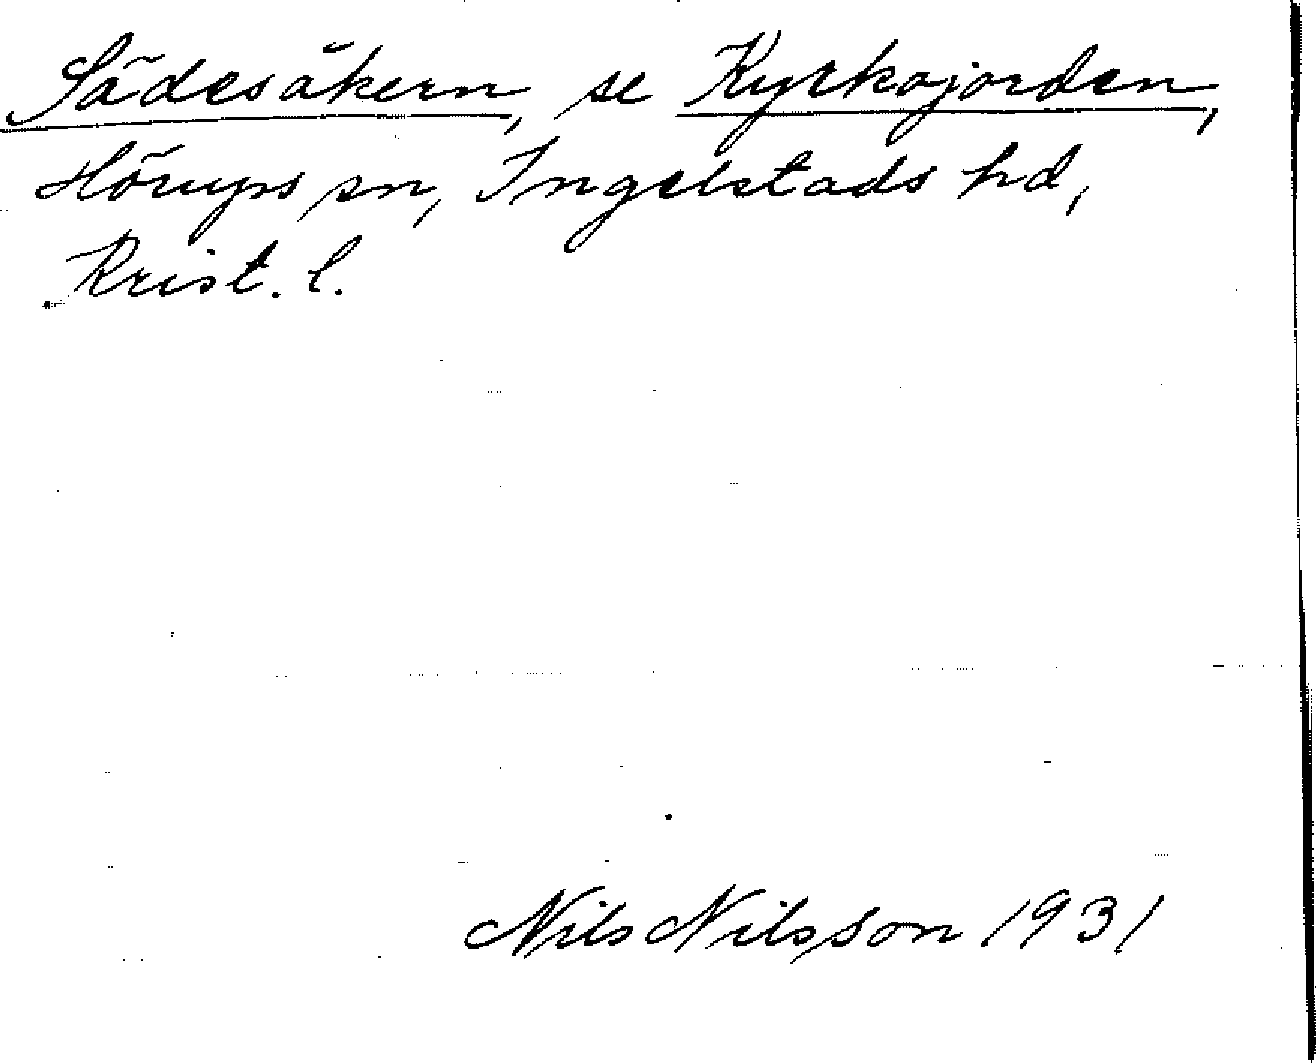 Sädesåkern, se Kyrkojorden,
Hörups sn, Ingelstads hd,
Krist. l.
Nils Nilsson 1931